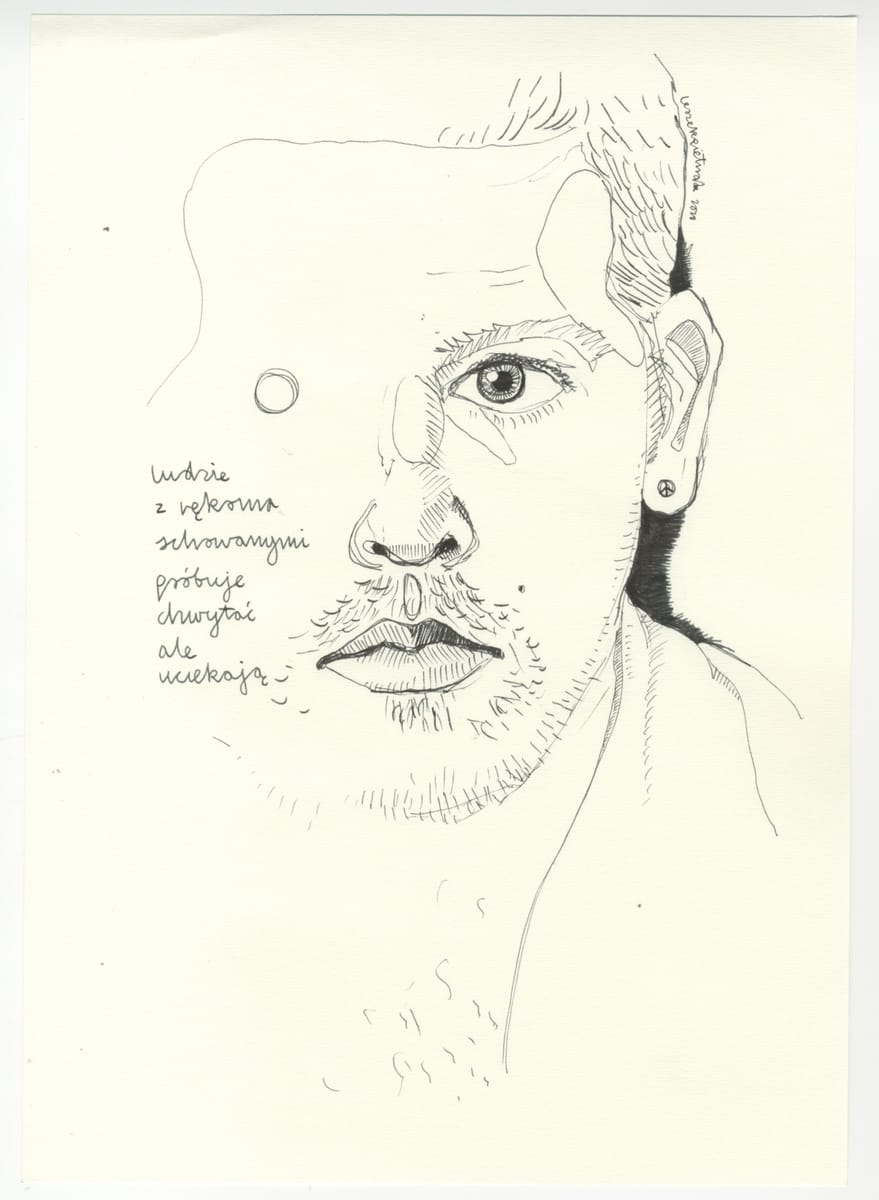 ludzie
z rękoma
schowanymi
próbuje
chwytać
ale
uciekają